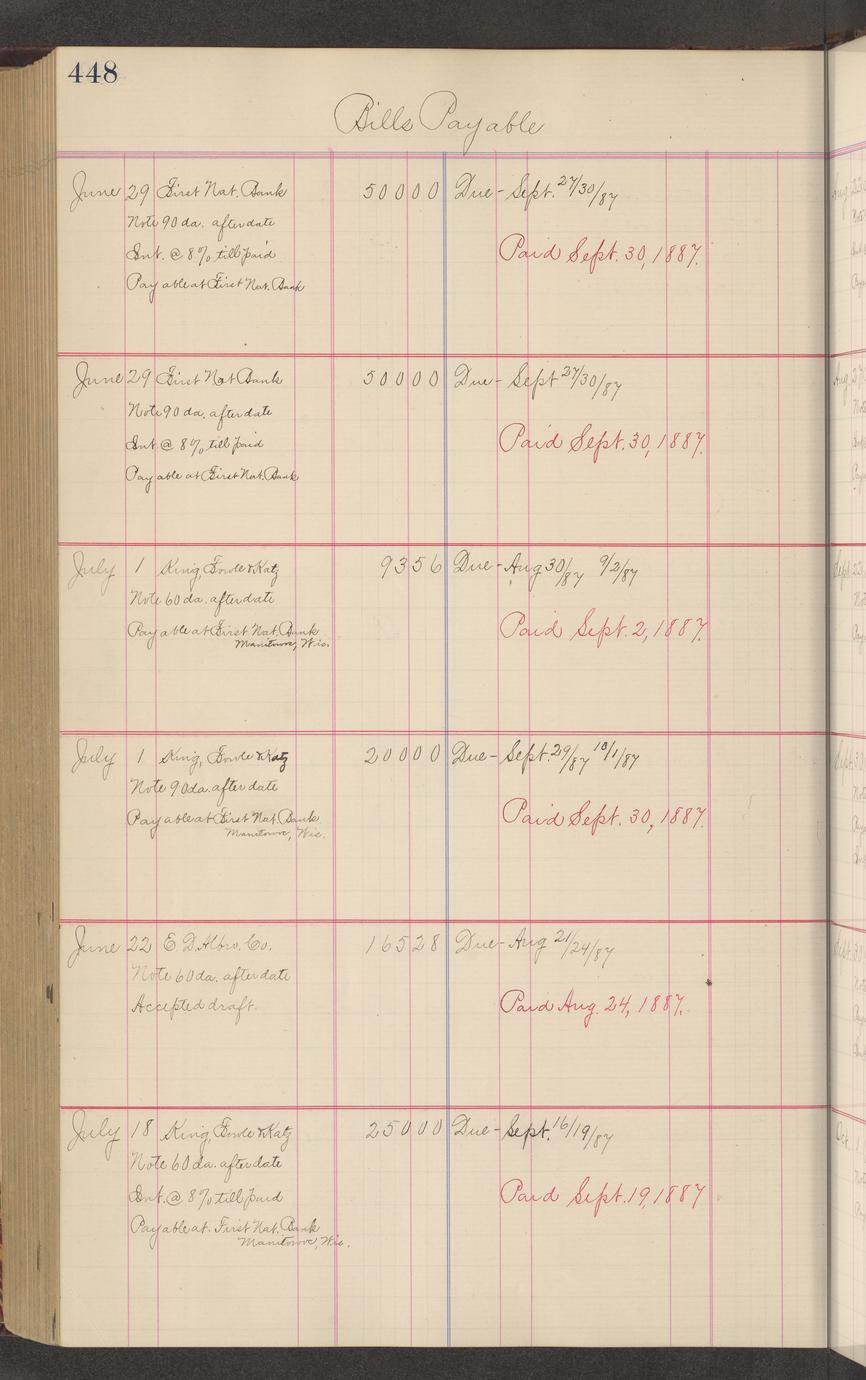 448
Bills Payable
June 29 First Nat. Bank 50000 Due - Sept. 27/30/87
Note 90 da. after date
Int. @ 8% till paid Paid Sept. 30, 1887.
Payable at First Nat. Bank
June 29 First Nat Bank 50000 Due - Sept 27/30/87
Note 90 da. after date
Int. @ 8% till paid Paid Sept. 30, 1887.
Payable at First Nat. Bank
July 1 King, Fowle & Katz 9356 Due - Aug 30/87 9/2/87
Note 60 da. after date
Payable at First Nat. Bank Paid Sept. 2, 1887.
Manitowoc, Wis.
July 1 King, Fowle & Katz 20000 Due - Sept. 29/87 10/1/87
Note 90 da. after date
Payable at First Nat. Bank Paid Sept. 30, 1887.
Manitowoc, Wis.
June 22 E. D. Albro. Co. 16528 Due - Aug 21/24/87
Note 60 da. after date
Accepted draft. Paid Aug. 24, 1887.
July 18 King, Fowle & Katz 25000 Due - Sept. 16/19/87
Note 60 da. after date
Int. @ 8% till paid Paid Sept. 19, 1887
Payable at. First Nat. Bank
Manitowoc, Wis.